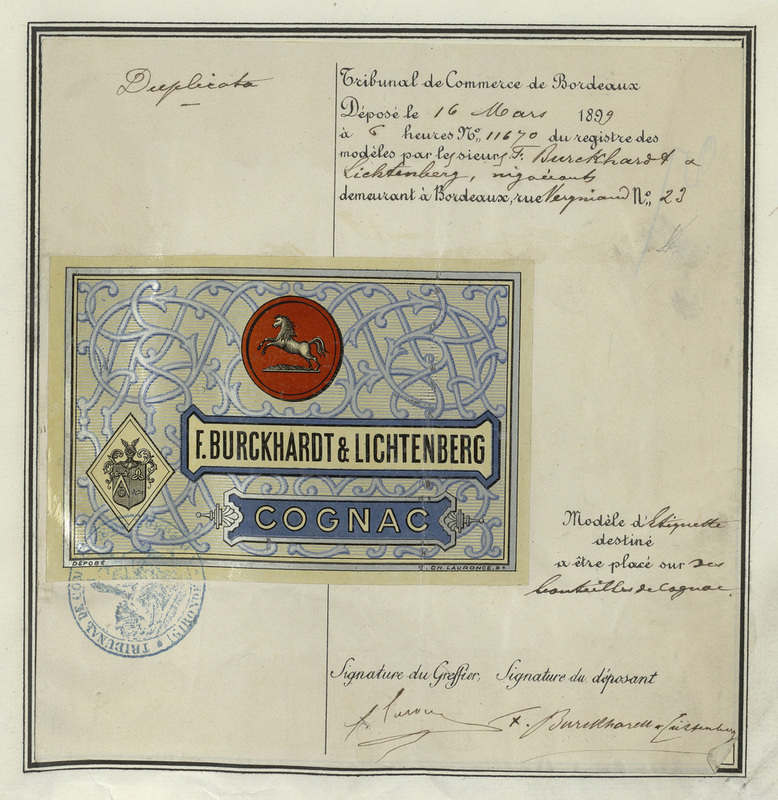 Duplicata
Tribunal de Commerce de Bordeaux
Déposé le 16 Mars 1899
à 6 heures No. 11670 du registre des
modèles par les sieurs F. Burckhardt &
Lichtenberg, négociants
demeurant à Bordeaux, rue Vergniaud No. 23
F. BURCKHARDT & LICHTENBERG
COGNAC
DÉPOSÉ
CH. LAURONCE. Bx
TRIBUNAL DE
Modèle d'Etiquette
destiné
a être placé sur des
bouteilles de Cognac.
Signature du Greffier, Signature du déposant
F. Burckhardt & Lichtenberg